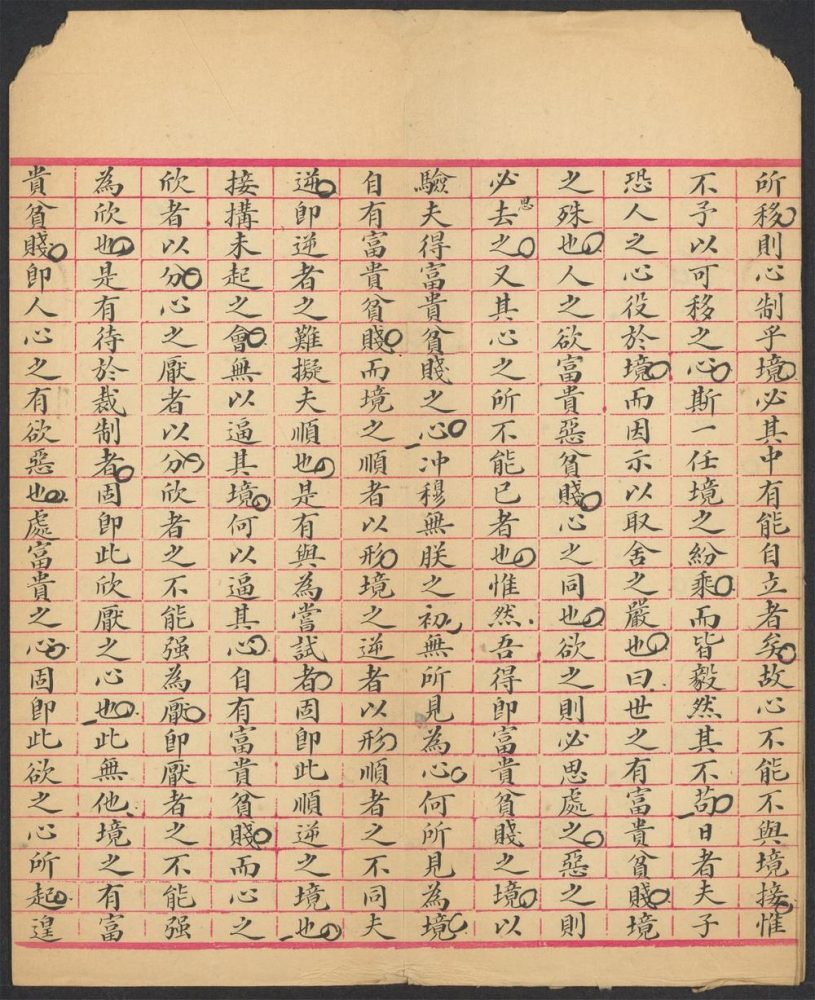 所移則心制乎境必其中有能自立者矣故心不能不與境接惟
不予以可移之心斯一任境之紛乘而皆毅然其不苟日者夫子
恐人之心役於境而因示以取舍之嚴也曰世之有富貴貧賤境
之殊也人之欲富貴惡貧賤心之同也欲之則必思處之惡之則
必思去之又其心之所不能已者也惟然吾得即富貴貧賤之境以
驗夫得富貴貧賤之心冲穆無朕之初無所見為心何所見為境
自有富貴貧賤而境之順者以形境之逆者以形順者之不同夫
逆即逆者之難擬夫順也是有與為嘗試者固即此順逆之境也
接搆未起之會無以逼其境何以逼其心自有富貴貧賤而心之
欣者以分心之厭者以分欣者之不能强為厭即厭者之不能强
為欣也是有待於裁制者固即此欣厭之心也此無他境之有富
貴貧賤即人心之有欲惡也處富貴之心固即此欲之心所起遑